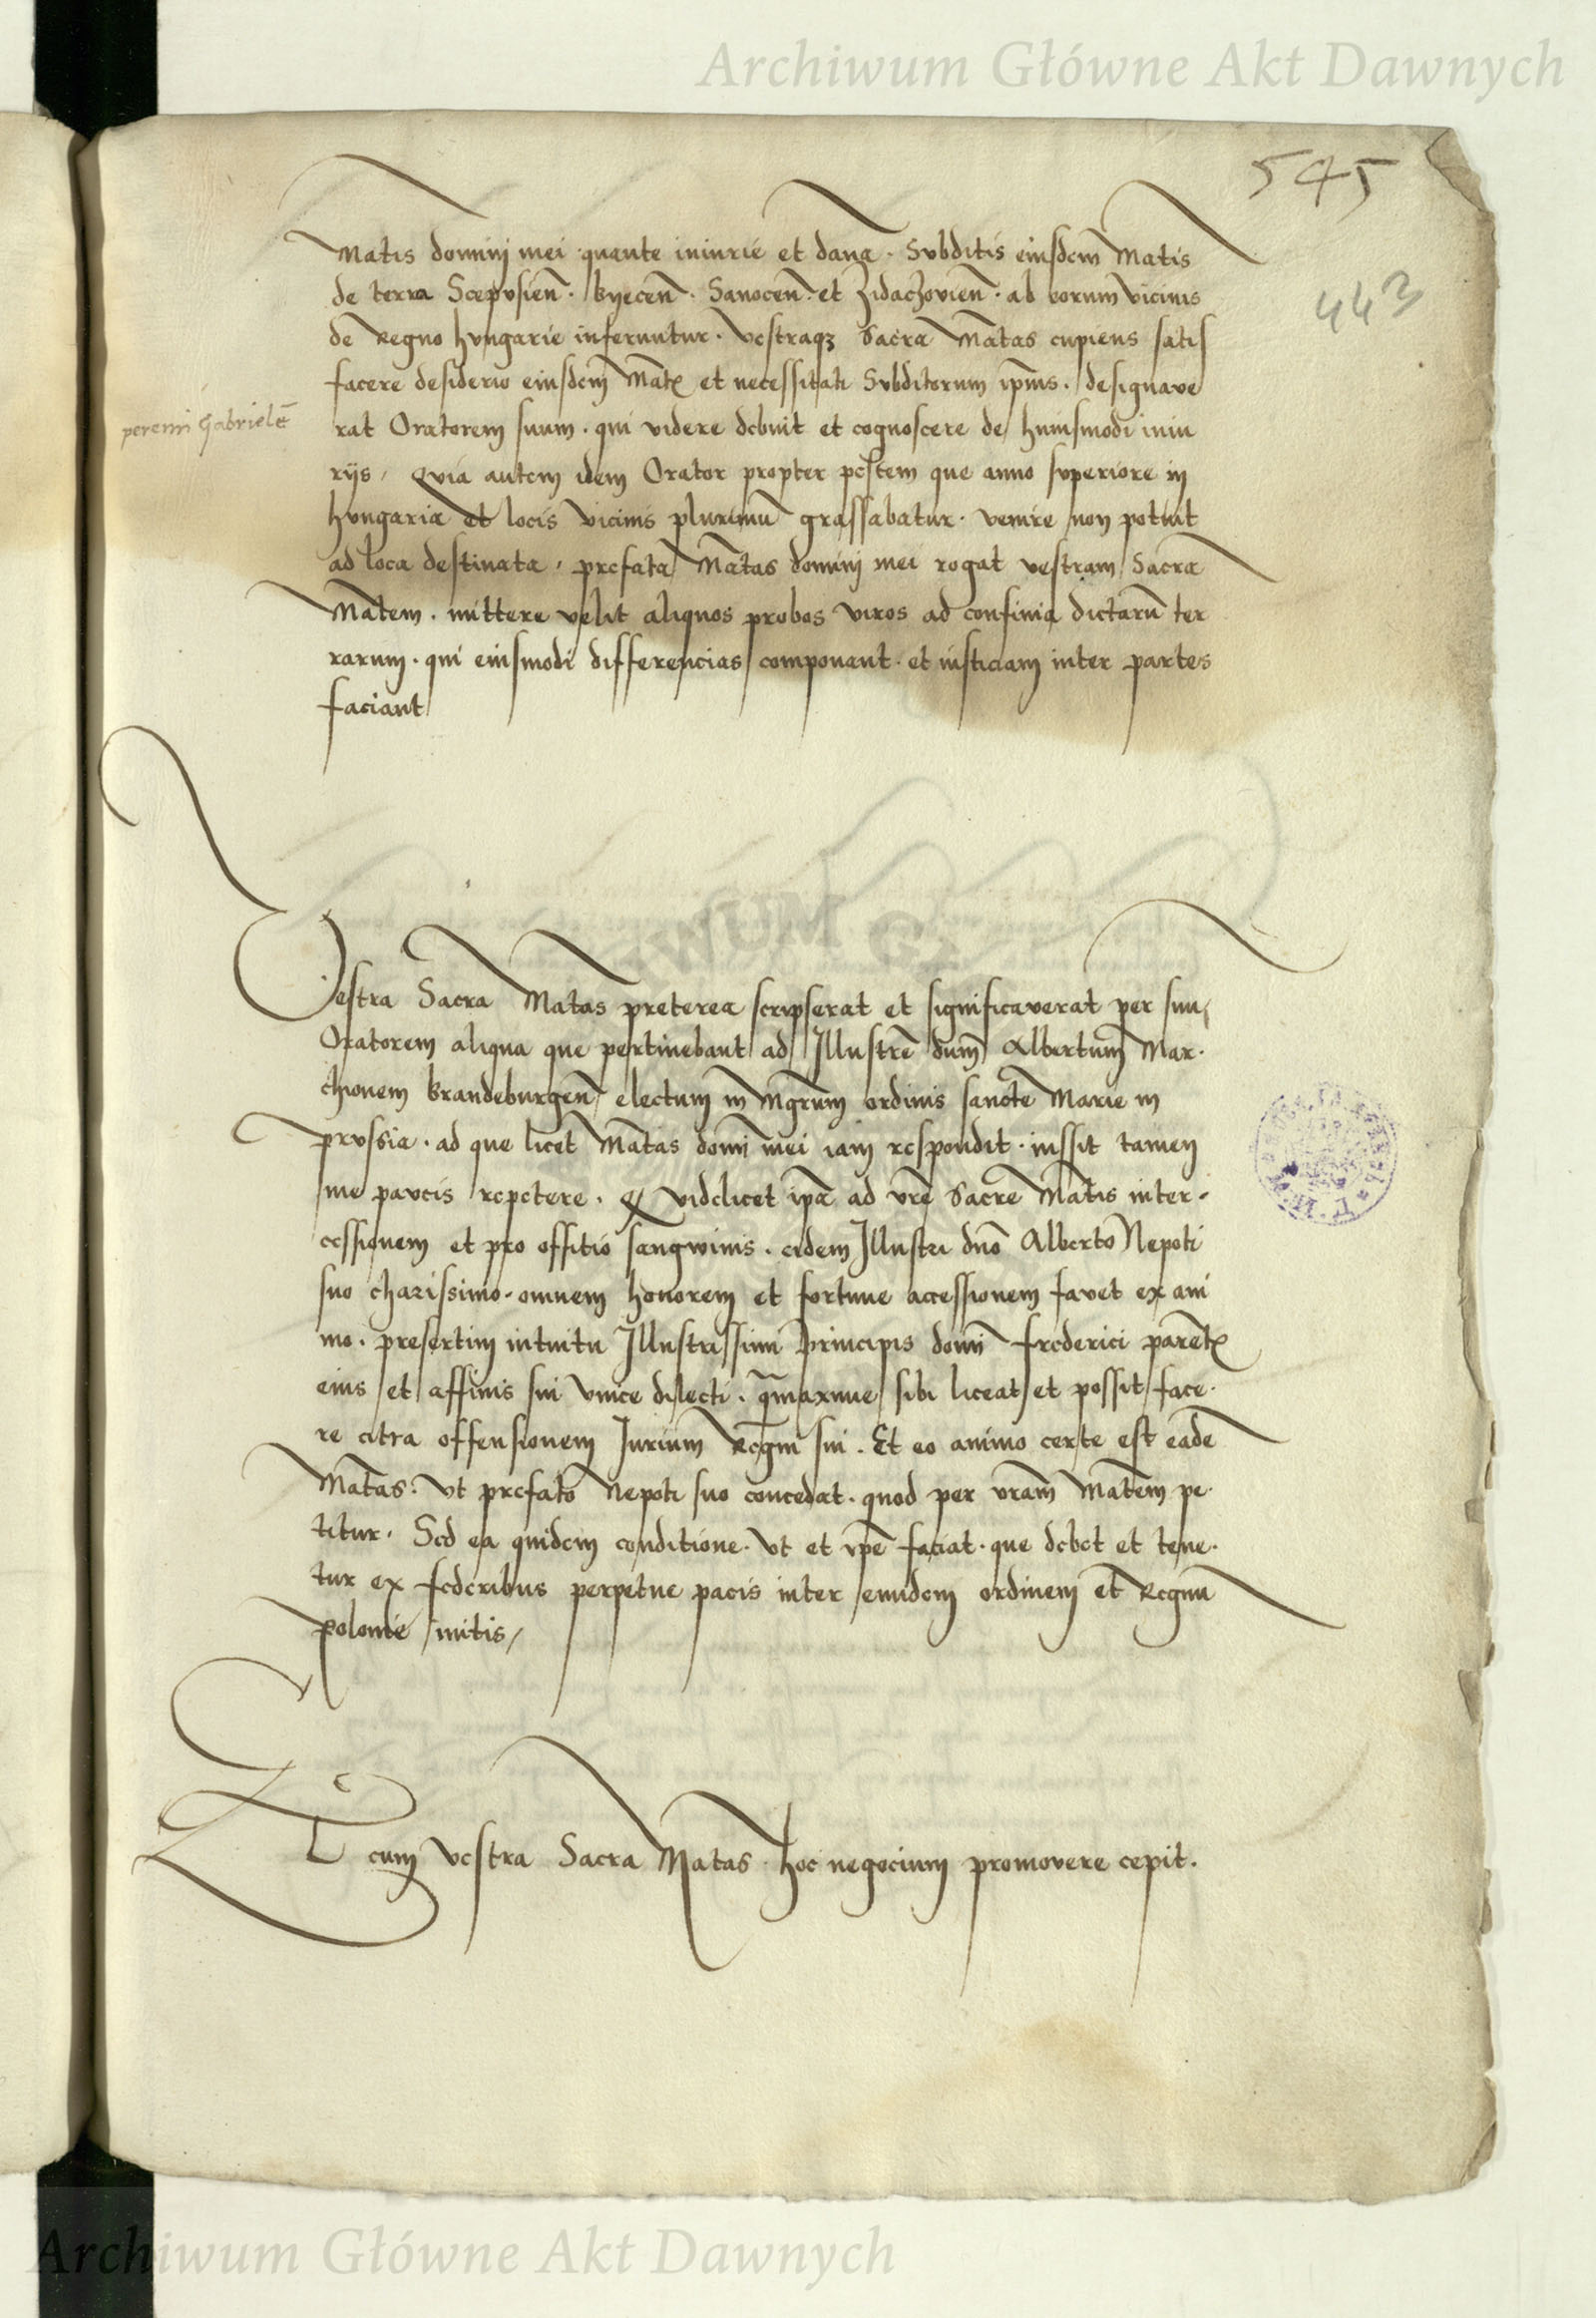 Archiwum Główne Akt Dawnych
545
443
Matis domini mei quante iniurie et dana. Subditis eiusdem Matis
de terra Scepusien. Byecen. Sanocen. et Zidaczovien. ab eorum vicinis
de Regno hungarie inferuntur. vestraqz Sacra Matas cupiens satis
facere desiderio eiusdem Mat et necessitati Subditorum ipius. designave
peremi Gabrielē
rat Oratorem suum. qui videre debuit et cognoscere de huiusmodi iniu
rijs, Quia autem idem Orator propter pestem que anno superiore in
hungaria et locis vicinis plurimū grassabatur. venire non potuit
ad loca destinata, prefata Matas domini mei rogat vestram Sacra
Matem. mittere velit aliquos probos viros ad confinia dictarū ter
rarum. qui eiusmodi differencias componant. et iusticiam inter partes
faciant
Vestra Sacra Matas preterea scripserat et significaverat per suu
Oratorem aliqua que pertinebant ad Illustrē dum Albertum Mar.
chionem brandeburgen electum in Mgrum ordinis sancte Marie in
prussia. ad que licet Matas domi mei iam respondit. iussit tamen
me paucis repetere. q videlicet ipa ad vrē Sacre Matis inter-
cessionem et pro offitio sangwinis. eidem Illustri dno Alberto Nepoti
suo charissimo. omnem honorem et fortune accessionem favet ex ani
mo. presertim intuitu Illustrissimi principis domi frederici parent
eius et affinis sui unice dilecti. qmaxime sibi liceat et possit face.
re citra offensionem Jurium Regni sui. Et eo animo certe est eadē
Matas. Ut prefato Nepoti suo concedat. quod per vram Matem pe.
titur. Sed ea quidem conditione. Ut et ipe faciat. que debet et tene.
tur ex federibus perpetue pacis inter eundem ordinem et Regnū
polonie initis,
Et cum vestra Sacra Matas hoc negocium promovere cepit.
Archiwum Główne Akt Dawnych